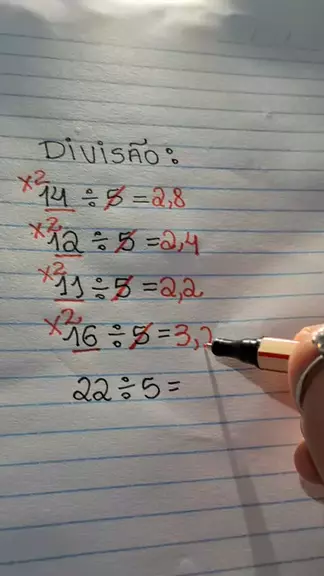 Divisão:
x2 14 ÷ 5 = 2,8
x2 12 ÷ 5 = 2,4
x2 11 ÷ 5 = 2,2
x2 16 ÷ 5 = 3,2
22 ÷ 5 =